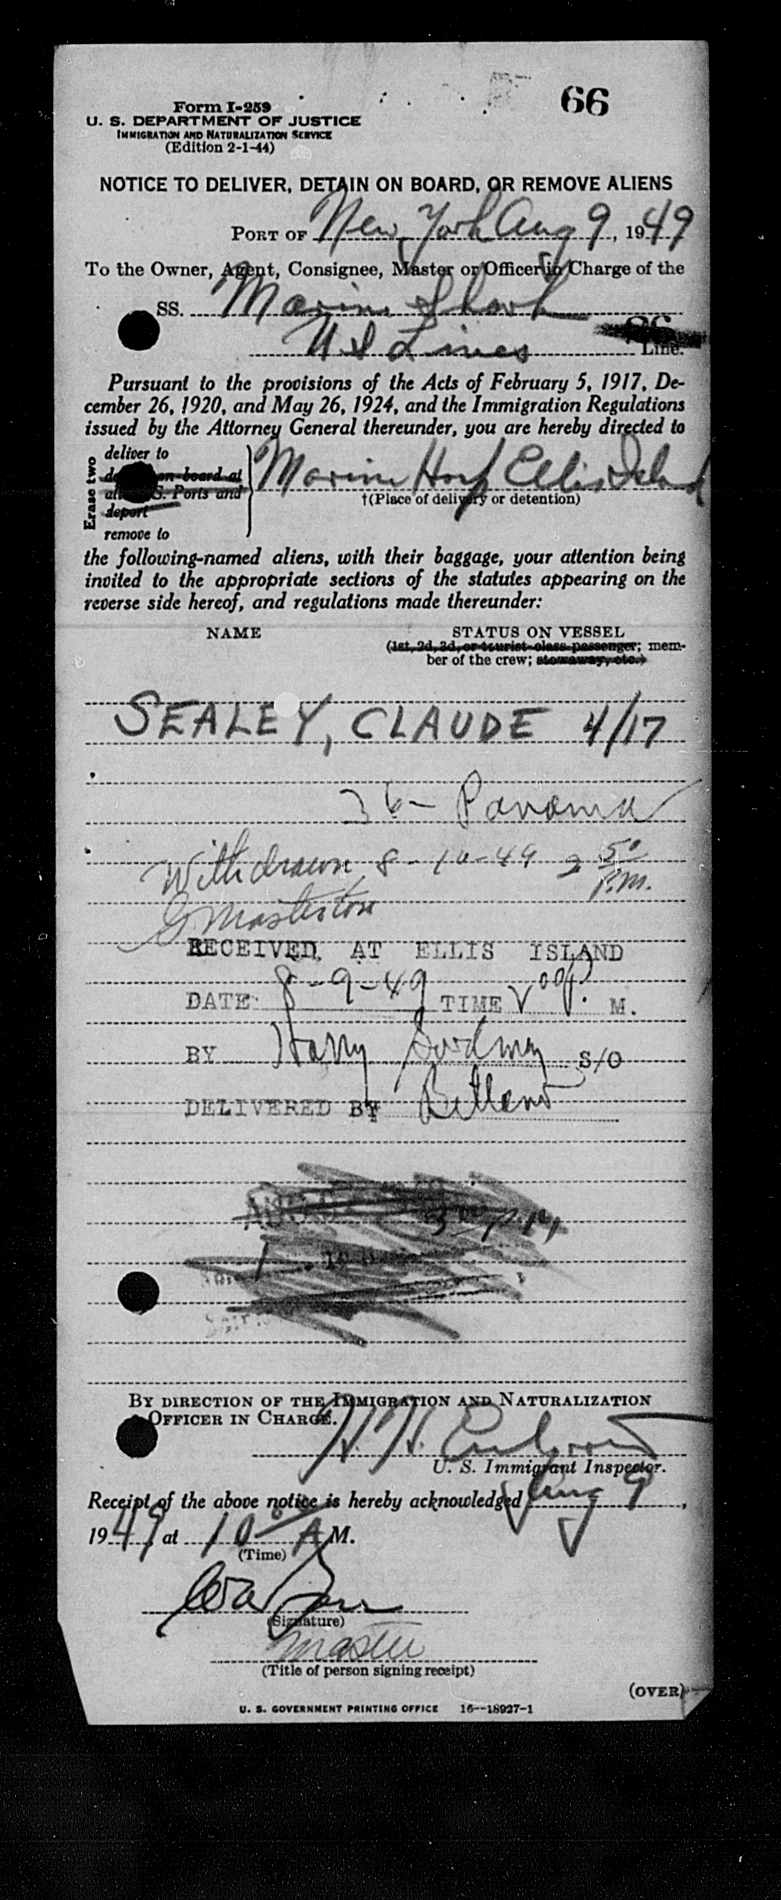 66
Form I-259
U. S. DEPARTMENT OF JUSTICE
IMMIGRATION AND NATURALIZATION SERVICE
(Edition 2-1-44)
NOTICE TO DELIVER, DETAIN ON BOARD, OR REMOVE ALIENS
PORT OF New York Aug 9, 1949
To the Owner, Agent, Consignee, Master or Officer in Charge of the
SS. Marine Shark
U S Lines Line.
Pursuant to the provisions of the Acts of February 5, 1917, De-
cember 26, 1920, and May 26, 1924, and the Immigration Regulations
issued by the Attorney General thereunder, you are hereby directed to
Erase two
deliver to
on board at
S. Ports and
deport
remove to
Marine Hosp Ellis Island
†(Place of delivery or detention)
the following-named aliens, with their baggage, your attention being
invited to the appropriate sections of the statutes appearing on the
reverse side hereof, and regulations made thereunder:
NAME STATUS ON VESSEL
(1st, 2d, 3d, or tourist-class passenger; mem-
ber of the crew; stowaway, etc.)
SEALEY, CLAUDE 4/17
36- Panama
Withdrawn 8-10-49 2 50 P.M.
G Masterton
RECEIVED AT ELLIS ISLAND
DATE 8-9-49 TIME 00 P. M.
BY Harry S/O
DELIVERED BY
3 P.M.
BY DIRECTION OF THE IMMIGRATION AND NATURALIZATION
OFFICER IN CHARGE.
H. H.
U. S. Immigrant Inspector.
Receipt of the above notice is hereby acknowledged Aug 9,
1949, at 10 00 A M.
(Time)
(Signature)
Master
(Title of person signing receipt)
(OVER)
U. S. GOVERNMENT PRINTING OFFICE 16—18927-1